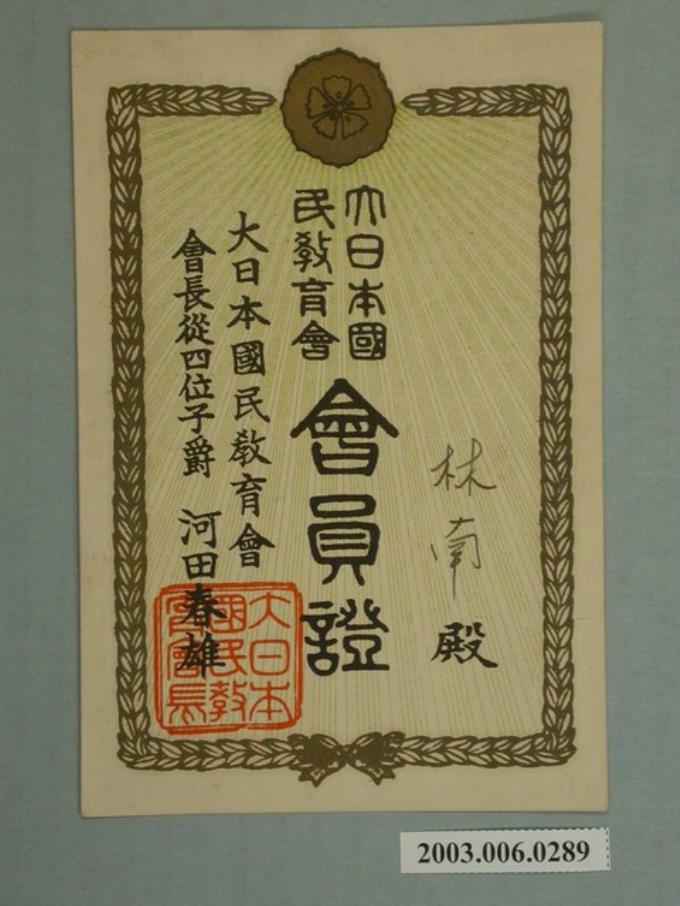 林南殿
大日本國
民敎育會
會員證
大日本國民敎育會
會長從四位子爵 河田春雄
大日本
國民敎
育會長
2003.006.0289